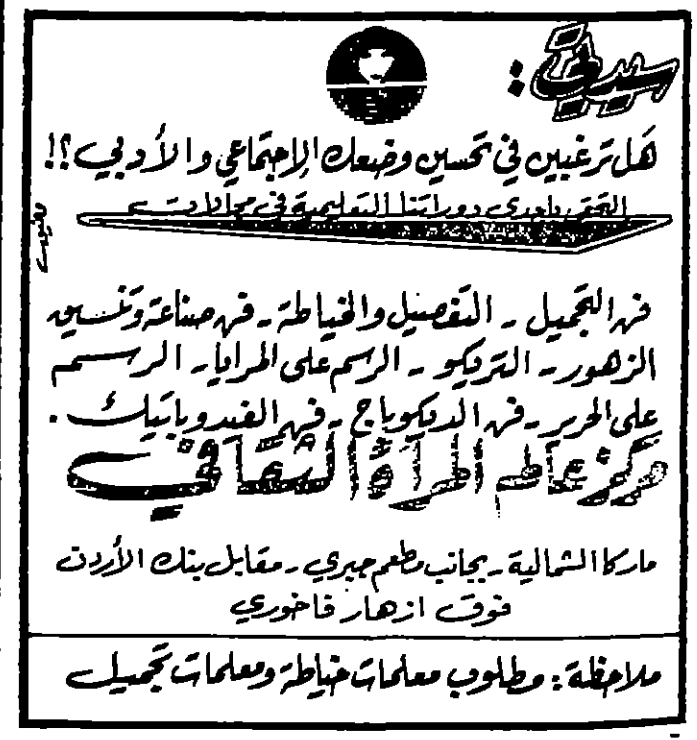 سيدتي :
هل ترغبين في تحسين وضعك الإجتماعي والأدبي ؟!!
التحقي باحدى دوراتنا التعليمية في مجالات
فن التجميل - التفصيل والخياطة - فن صناعة وتنسيق
الزهور - التريكو - الرسم على المرايا - الرسم
على الحرير - فن الديكوباج - فن الفيدوباتيك .
مركز عالم المرأة الثقافي
ماركا الشمالية - بجانب مطعم جبري - مقابل بنك الأردن
فوق ازهار فاخوري
ملاحظة : مطلوب معلمات خياطة ومعلمات تجميل